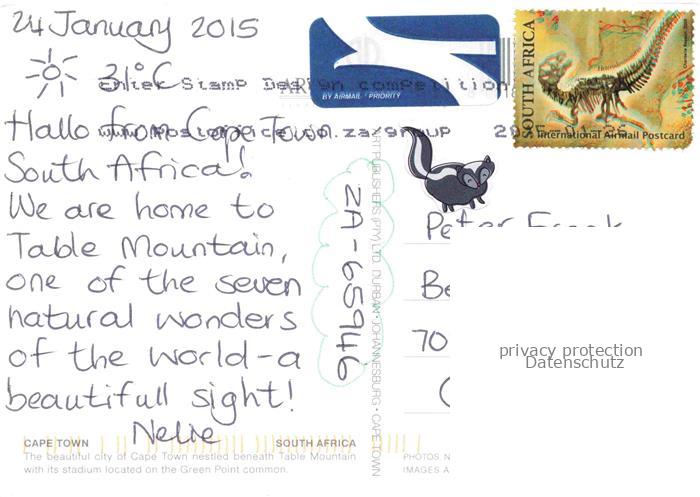 24 January 2015
31°C
Hallo from Cape Town
South Africa!
We are home to
Table Mountain,
one of the seven
natural wonders
of the world-a
beautifull sight!
Nelie
CAPE TOWN SOUTH AFRICA
The beautiful city of Cape Town nestled beneath Table Mountain
with its stadium located on the Green Point common.
BY AIRMAIL / PRIORITY
Enter Stamp Design competition
SOUTH AFRICA
International Airmail Postcard
ART PUBLISHERS (PTY) LTD DURBAN • JOHANNESBURG • CAPE TOWN
ZA-65946
Peter
Be
70
PHOTOS
IMAGES
privacy protection
Datenschutz